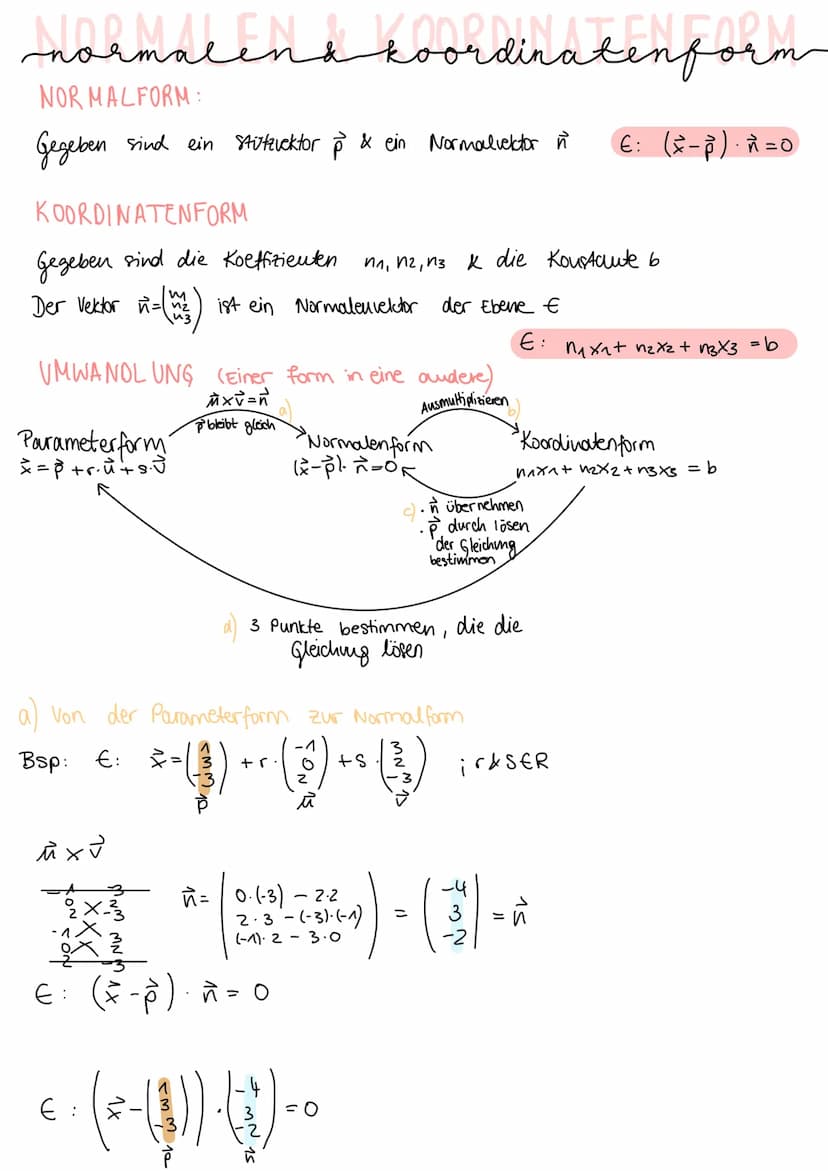 NORMALEN & KOORDINATENFORM
normalen & koordinatenform
NORMALFORM:
Gegeben sind ein Stützvektor p⃗ & ein Normalvektor n⃗
E: (x⃗-p⃗)·n⃗=0
KOORDINATENFORM
Gegeben sind die Koeffizienten n1, n2, n3 & die Konstante b
Der Vektor n⃗=(n1 n2 n3) ist ein Normalenvektor der Ebene E
E: n1x1+ n2x2 + n3x3 = b
UMWANDLUNG (Einer form in eine andere)
u⃗×v⃗=n⃗
p⃗ bleibt gleich
a)
Ausmultiplizieren
b)
Parameterform
x⃗ = p⃗ +r·u⃗+s·v⃗
Normalenform
(x⃗-p⃗)·n⃗=0
Koordinatenform
n1x1+ n2x2+n3x3 = b
c) · n⃗ übernehmen
· p⃗ durch lösen
der Gleichung
bestimmen
d) 3 Punkte bestimmen, die die
Gleichung lösen
a) Von der Parameterform zur Normalform
Bsp: E: x⃗=(1 3 -3) +r·(-1 0 2) +s·(3 2 -3) ; r&s∈R
p⃗ u⃗ v⃗
u⃗×v⃗
-1 3
0 2
2 -3
-1 3
0 2
2 -3
n⃗= (0·(-3) - 2·2
2·3 -(-3)·(-1)
(-1)·2 - 3·0) = (-4 3 -2) = n⃗
E: (x⃗-p⃗)·n⃗ = 0
E: (x⃗-(1 3 -3))·(-4 3 -2)=0
p⃗ n⃗